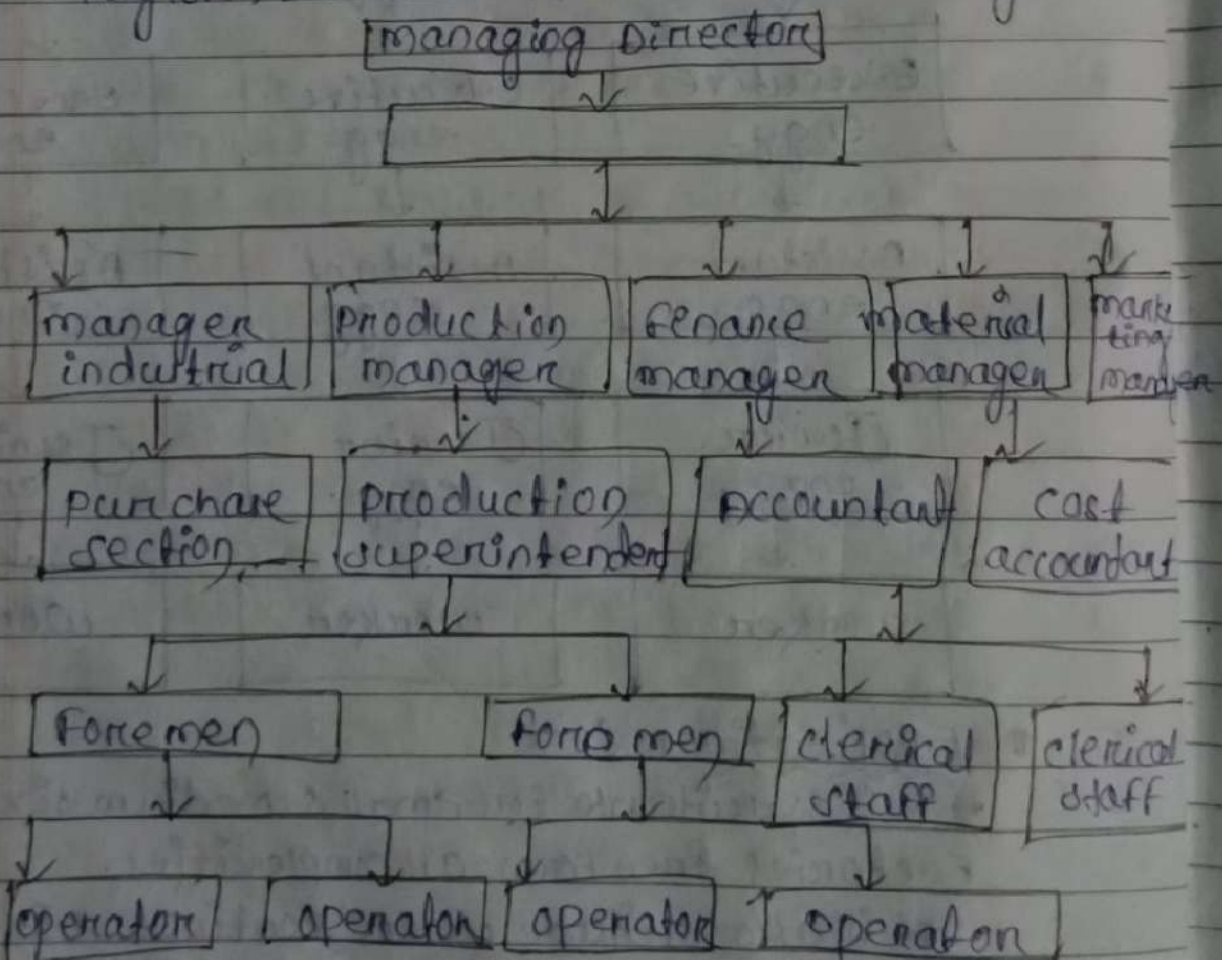 managing Director
manager
industrial
production
manager
fenance
manager
material
manager
marke
ting
manager
purchase
section
production
superintendent
Accountant
cost
accountant
foremen
foremen
clerical
staff
clerical
staff
operator
operator
operator
operator